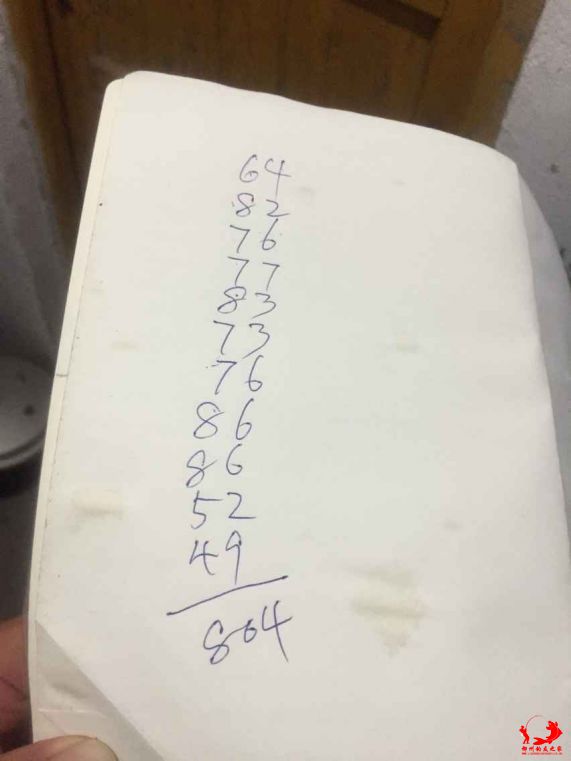 64
82
76
77
83
73
76
86
86
52
49
804
柳州钓友之家